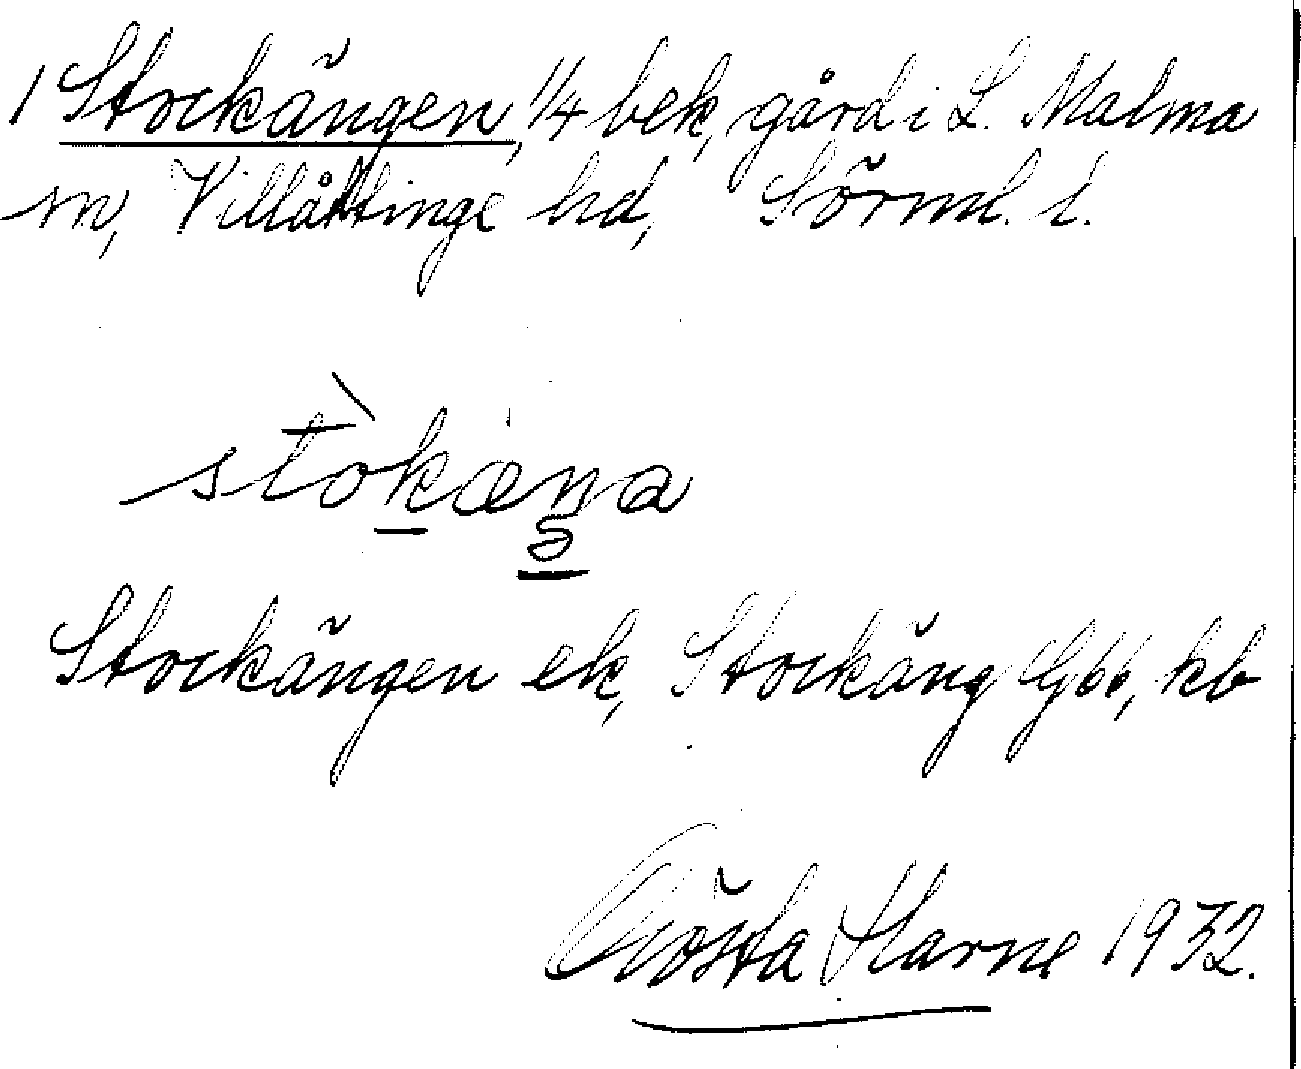 1 Stockängen, 1/4 bek, gård i L. Malma
sn, Villåttinge hd, Sörml. l.
stòkæŋa
Stockängen ek, Stockäng G66, kb
Gösta Harne 1932.